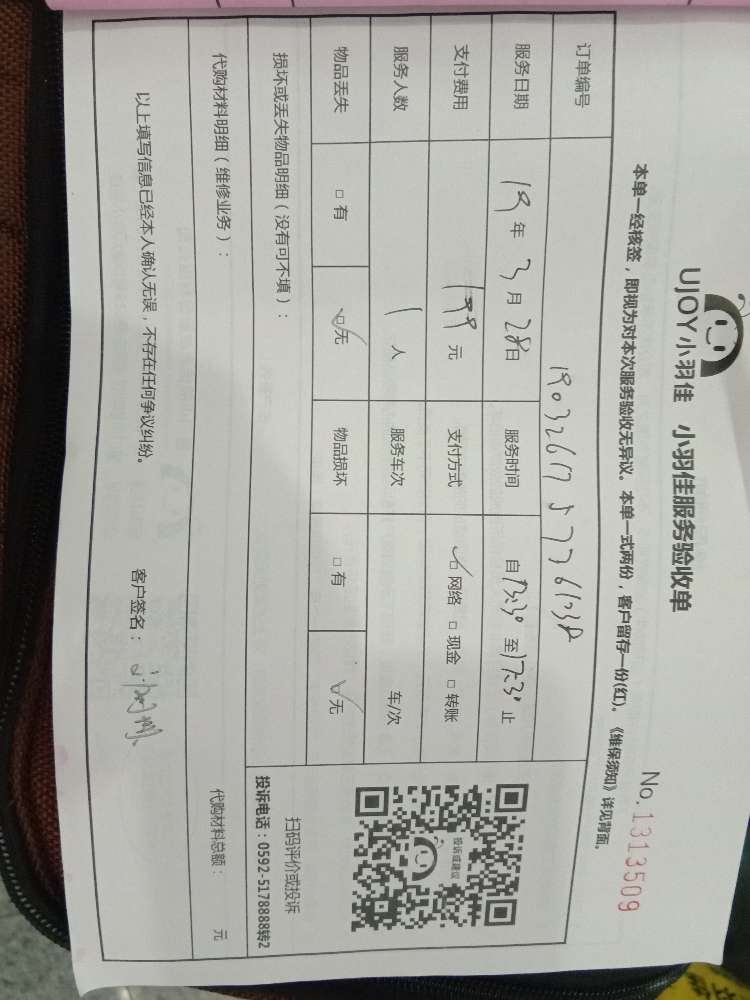 UJOY小羽佳 小羽佳服务验收单
No.1313509
本单一经核签，即视为对本次服务验收无异议。本单一式两份，客户留存一份(红)。《维保须知》详见背面。
订单编号
服务日期 19年3月28日 服务时间 自13:30至17:30止
支付费用 199元 支付方式 □网络 □现金 □转账
服务人数 1人 服务车次 车/次
物品丢失 □有 □无 物品损坏 □有 □无
损坏或丢失物品明细（没有可不填）：
投诉或建议
扫码评价或投诉
投诉电话：0592-5178888转2
代购材料明细（维修业务）：
代购材料总额： 元
以上填写信息已经本人确认无误，不存在任何争议纠纷。
客户签名：